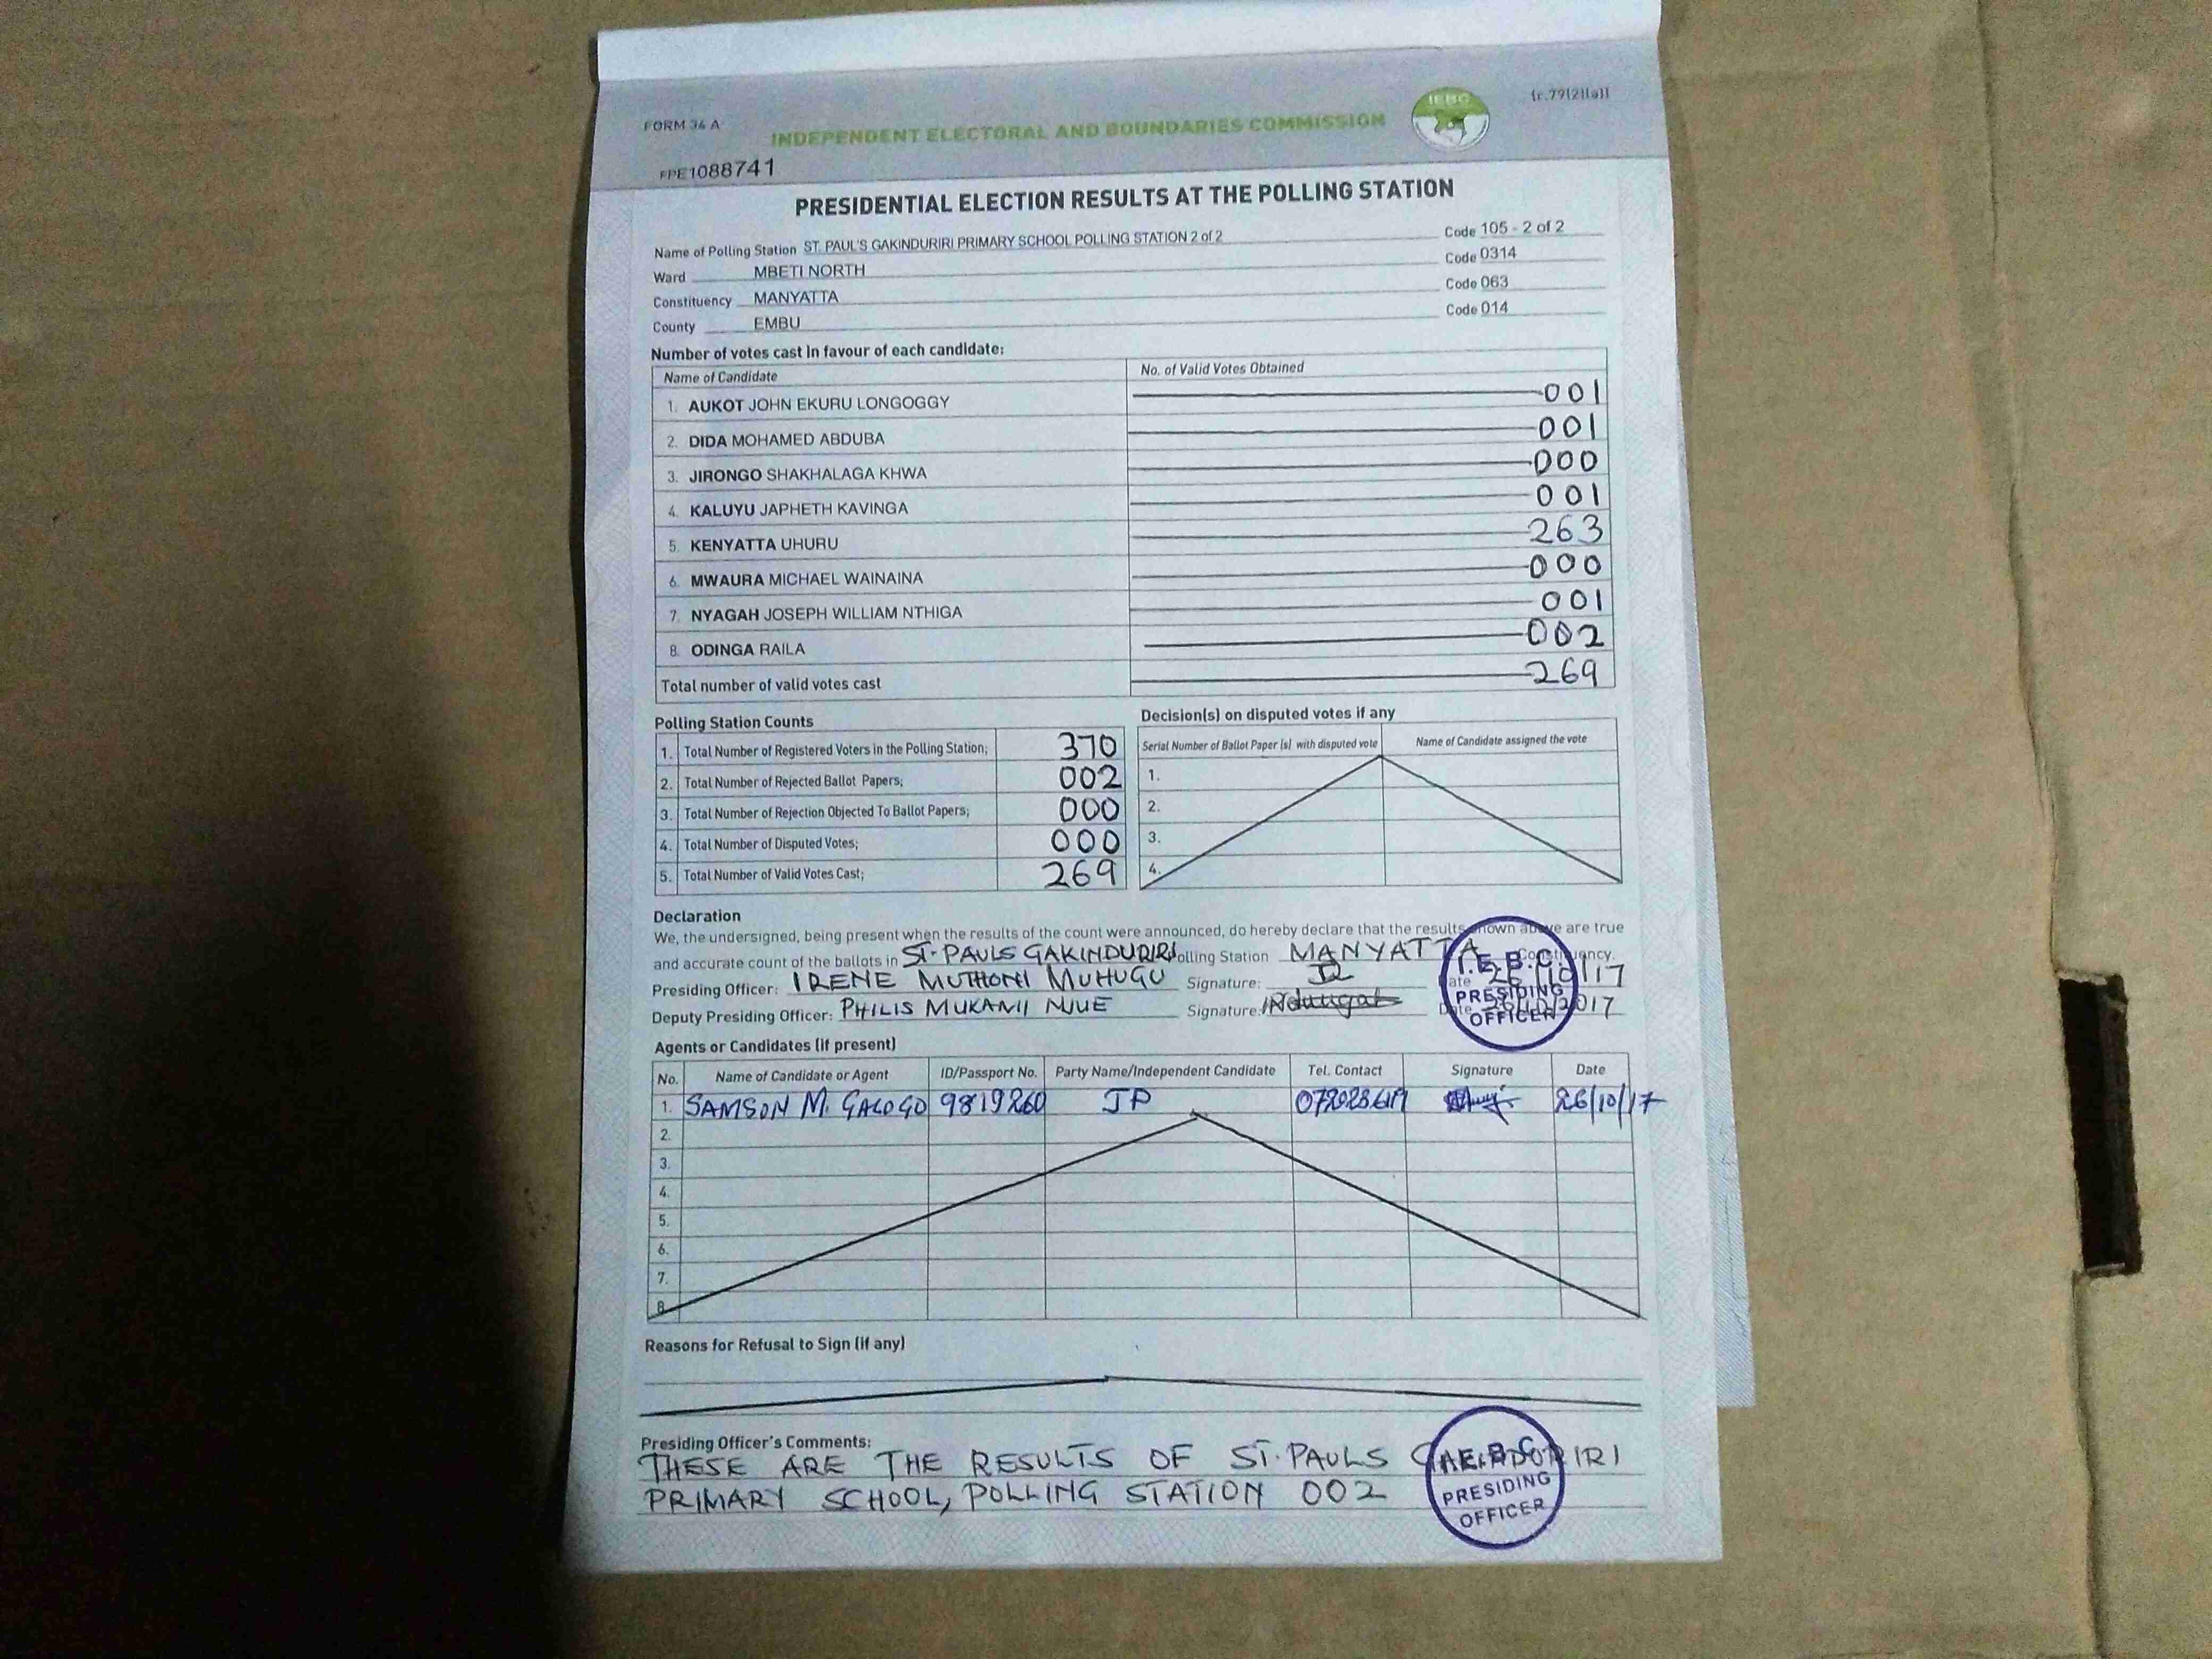 FORM 34 A
INDEPENDENT ELECTORAL AND BOUNDARIES COMMISSION
IEBC
(r.79(2)(a))
FPE1088741
PRESIDENTIAL ELECTION RESULTS AT THE POLLING STATION
Name of Polling Station ST. PAUL'S GAKINDURIRI PRIMARY SCHOOL POLLING STATION 2 of 2 Code 105 - 2 of 2
Ward MBETI NORTH Code 0314
Constituency MANYATTA Code 063
County EMBU Code 014
Number of votes cast in favour of each candidate:
Name of Candidate No. of Valid Votes Obtained
1. AUKOT JOHN EKURU LONGOGGY 001
2. DIDA MOHAMED ABDUBA 001
3. JIRONGO SHAKHALAGA KHWA 000
4. KALUYU JAPHETH KAVINGA 001
5. KENYATTA UHURU 263
6. MWAURA MICHAEL WAINAINA 000
7. NYAGAH JOSEPH WILLIAM NTHIGA 001
8. ODINGA RAILA 002
Total number of valid votes cast 269
Polling Station Counts
1. Total Number of Registered Voters in the Polling Station; 370
2. Total Number of Rejected Ballot Papers; 002
3. Total Number of Rejection Objected To Ballot Papers; 000
4. Total Number of Disputed Votes; 000
5. Total Number of Valid Votes Cast; 269
Decision(s) on disputed votes if any
Serial Number of Ballot Paper (s) with disputed vote Name of Candidate assigned the vote
1.
2.
3.
4.
Declaration
We, the undersigned, being present when the results of the count were announced, do hereby declare that the results shown above are true
and accurate count of the ballots in ST. PAULS GAKINDURIRI Polling Station MANYATTA Constituency.
Presiding Officer: IRENE MUTHONI MUHUGU Signature: Date 26/10/17
Deputy Presiding Officer: PHILIS MUKAMI NJUE Signature: Date 26/10/2017
I.E.B.C.
PRESIDING
OFFICER
Agents or Candidates (if present)
No. Name of Candidate or Agent ID/Passport No. Party Name/Independent Candidate Tel. Contact Signature Date
1. SAMSON M. 9819260 JP 26/10/17
2.
3.
4.
5.
6.
7.
8.
Reasons for Refusal to Sign (if any)
Presiding Officer's Comments:
THESE ARE THE RESULTS OF ST. PAULS GAKINDURIRI
PRIMARY SCHOOL, POLLING STATION 002
I.E.B.C.
PRESIDING
OFFICER